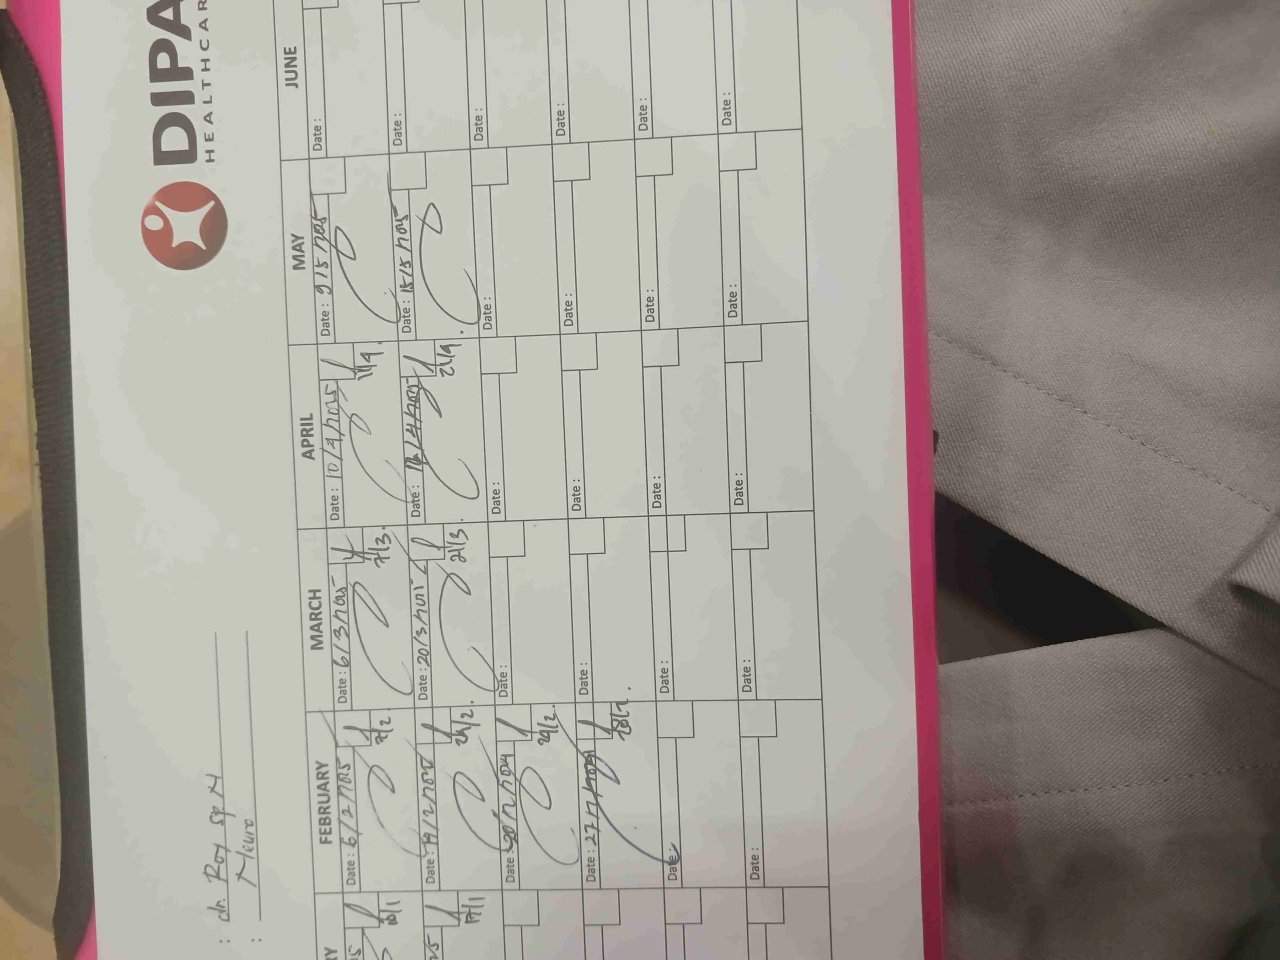 DIPA
HEALTHCAR
: dr. Roy Sp N
: Neuro
RY FEBRUARY MARCH APRIL MAY JUNE
15 Date : 6/2/2025 Date : 6/3/2025 Date : 10/4/2025 Date : 9/5/2025 Date :
10/1 7/2. 7/3. 11/4.
25 Date : 19/2/2025 Date : 20/3/2025 Date : Date : 15/5/2025 Date :
17/1 21/3. 21/4.
Date : Date : Date : Date : Date :
Date : 27/2/2024 Date : Date : Date : Date :
28/2.
Date : Date : Date : Date : Date :
Date : Date : Date : Date : Date :